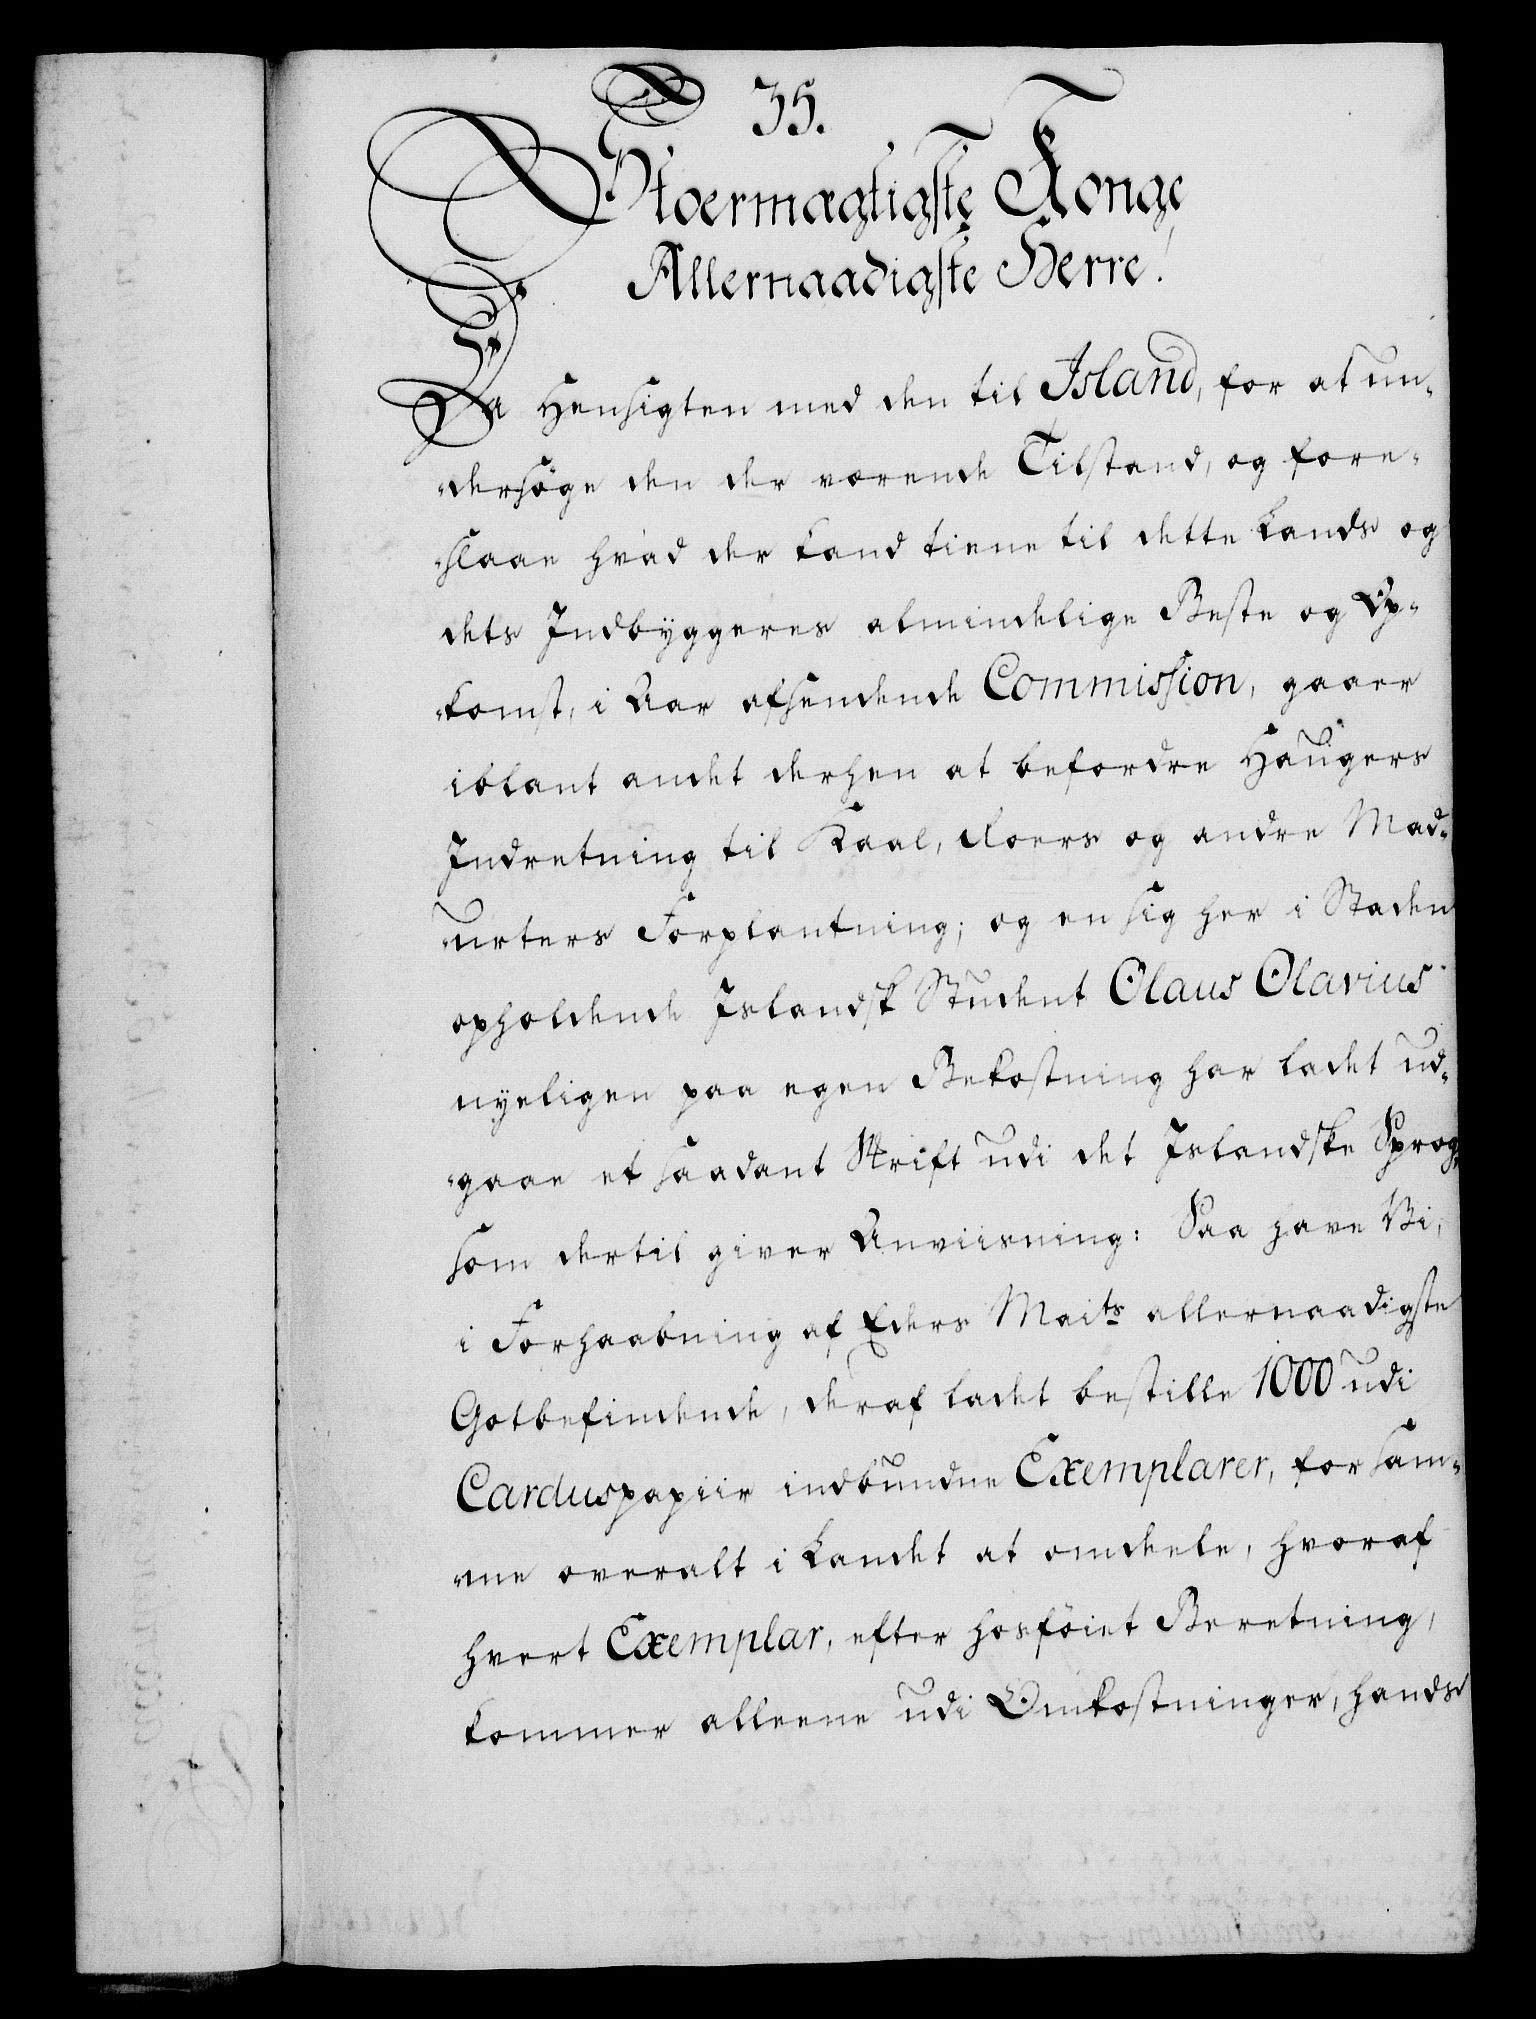 35.
Stoermægtigste Konge
Allernaadigste Herre!
Da Hensigten med den til Island, for at un-
-dersöge den der værende Tilstand, og fore-
-slaae hvad der kand tiene til dette Lands og
dets Indbyggeres almindelige Beste og Op-
-komst, i Aar afsendende Commission, gaaer
iblant andet derhen at befordre Haugers
Indretning til Kaal, Roers og andre Mad-
-urters Forplantning; og en sig her i Staden
opholdende Islandsk Student Olaus Olavius
nyeligen paa egen Bekostning har ladet ud-
-gaae et saadant Skrift udi det Islandske Sprog,
som dertil giver Anviisning: Saa have Vi,
i Forhaabning af Eders Maits allernaadigste
Gotbefindende, deraf ladet bestille 1000 udi
Carduspapiir indbundne Exemplarer, for sam-
-me overalt i Landet at omdeele, hvoraf
hvert Exemplar, efter hosföiet Beretning,
kommer alleene udi Omkostninger, hands